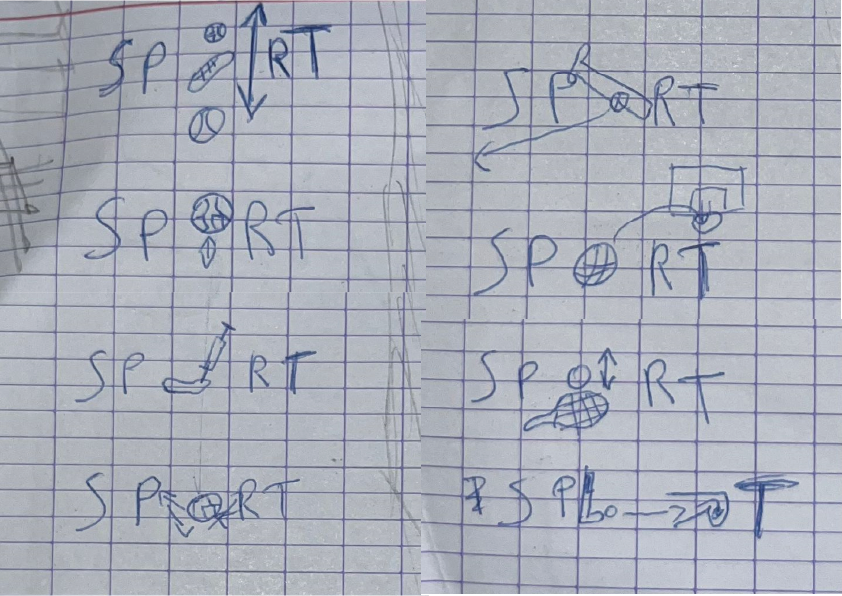 SP RT
SP RT
SP RT
SP RT
SP RT
SP RT
SP RT
SP T